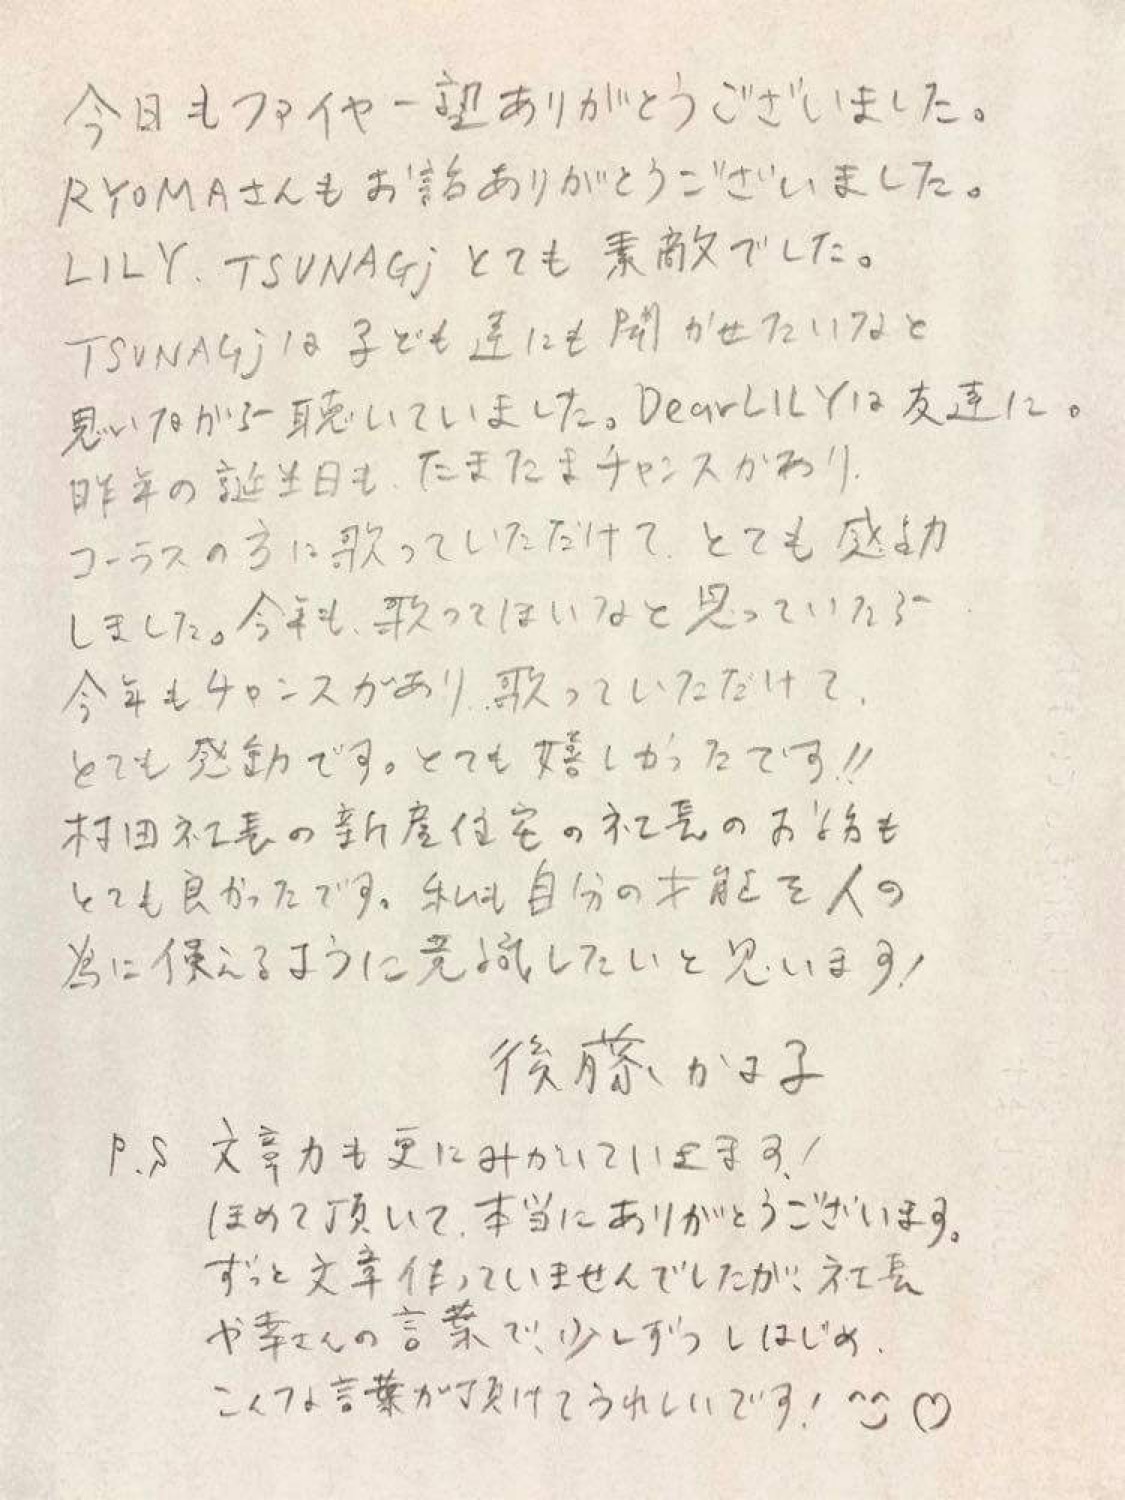 今日もファイヤー塾ありがとうございました。
RYOMAさんもお話ありがとうございました。
LILY、TSUNAGjとても素敵でした。
TSUNAGjは子ども達にも聞かせたいなと
思いながら聴いていました。DearLILYは友達に。
昨年の誕生日も、たまたまチャンスがあり、
コーラスの方に歌っていただけて、とても感動
しました。今年も、歌ってほしいなと思っていたら
今年もチャンスがあり、歌っていただけて、
とても感動です。とても嬉しかったです!!
村田社長の新産住宅の社長のお話も
とても良かったです。私も自分の才能を人の
為に使えるように意識したいと思います!
後藤 かほ子
P.S 文章力も更にみがいていきます!
ほめて頂いて、本当にありがとうございます。
ずっと文章作っていませんでしたが、社長
や幸さんの言葉で、少しずつしはじめ、
こんな言葉が頂けてうれしいです! ^^ ♡